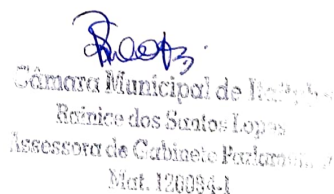 Câmara Municipal de
Rainice dos Santos Lopes
Assessora de Gabinete
Mat. 120094-1